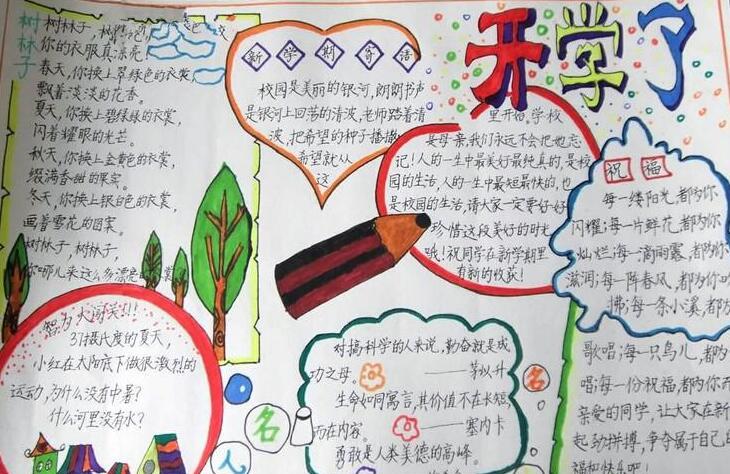 开学了
树林子
树林子,树林子,
你的衣服真漂亮!
春天,你换上翠绿色的衣裳,
飘着淡淡的花香。
夏天,你换上碧绿绿的衣裳,
闪着耀眼的光芒。
秋天,你换上金黄色的衣裳,
缀满香甜的果实。
冬天,你换上银白色的衣裳,
画着雪花的图案。
树林子,树林子,
你哪儿来这么多漂亮的衣裳
新学期寄语
校园是美丽的银河,朗朗书声
是银河上回荡的清波,老师踏着清
波,把希望的种子播撒
希望就从
这
里开始,学校
是母亲,我们永远不会把她忘
记!人的一生中最美好最纯真的,是校
园的生活,人的一生中最短最快的,也
是校园的生活,请大家一定要好好
珍惜这段美好的时光
哦!祝同学在新学期里
有新的收获!
祝福
每一缕阳光,都为你
闪耀;每一片鲜花,都为你
灿烂;每一滴雨露,都为你
滋润;每一阵春风,都为你吹
拂;每一条小溪,都为
歌唱;每一只鸟儿,都为
唱;每一份祝福,都为你而
亲爱的同学,让大家在新
起,努力拼搏,争夺属于自己
福和快乐吧!
智力大闯关!!!
37摄氏度的夏天,
小红在太阳底下做很激烈的
运动,为什么没有中暑?
什么河里没有水?
名人名
对搞科学的人来说,勤奋就是成
功之母。 ——茅以升
生命如同寓言,其价值不在长短,
而在内容。 ——塞内卡
勇敢是人类美德的高峰。